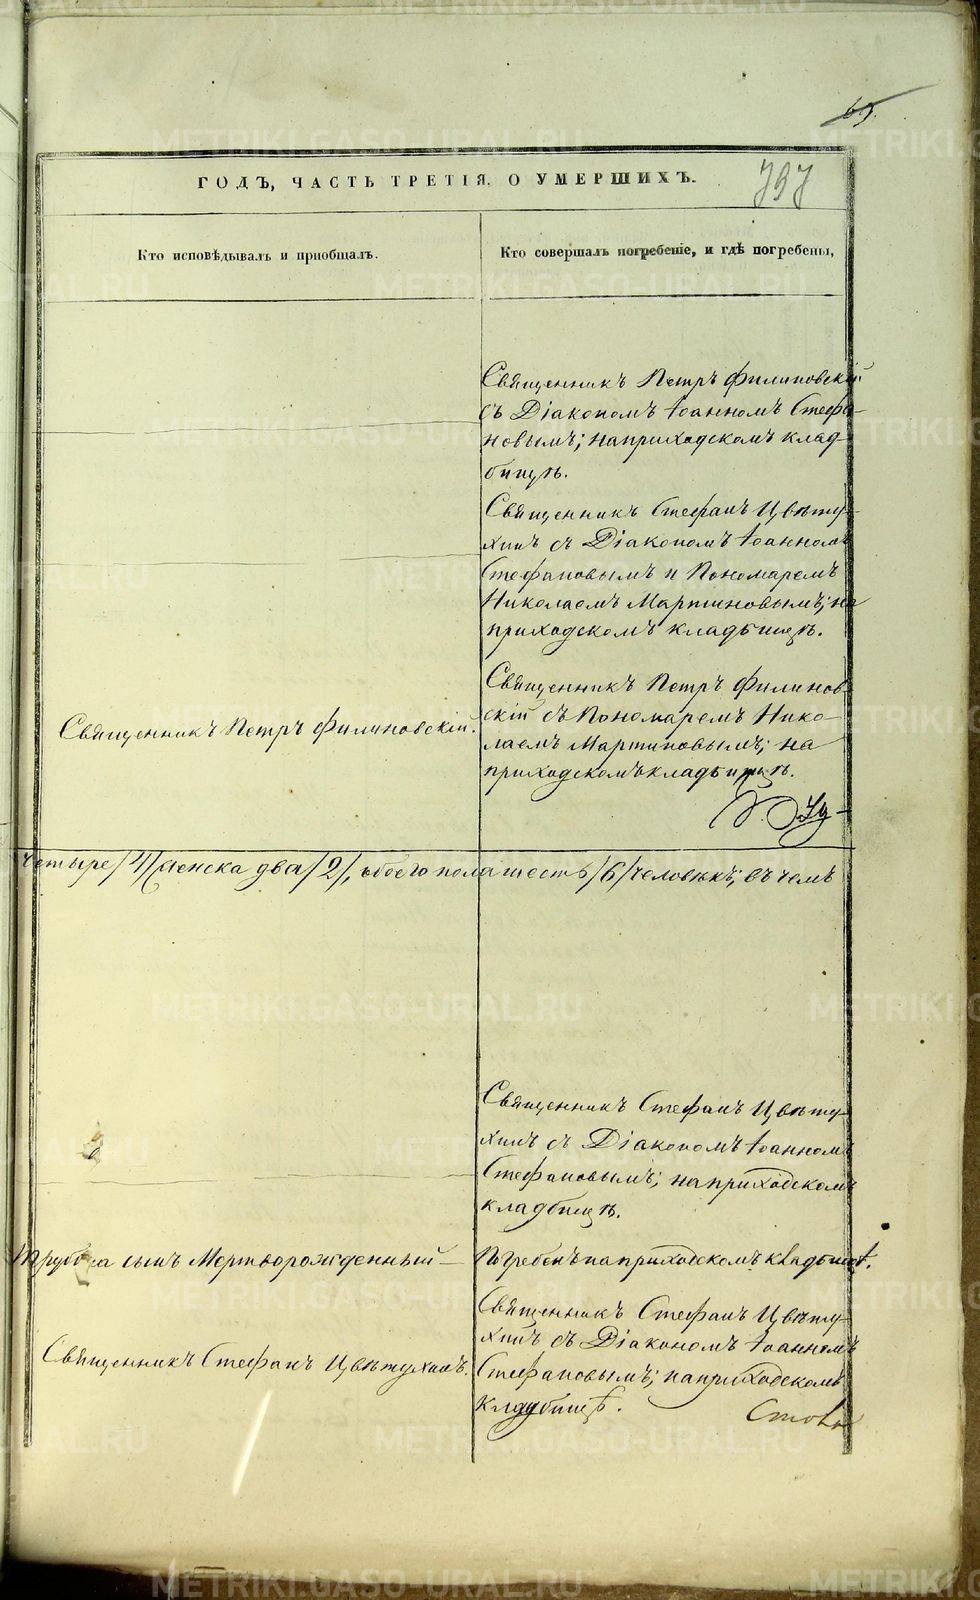 69.
ГОДЪ, ЧАСТЬ ТРЕТІЯ. О УМЕРШИХЪ.
797
Кто исповѣдывалъ и приобщалъ.
Кто совершалъ погребеніе, и гдѣ погребены,
Священникъ Петръ Филиновскій
съ Діакономъ Іоанномъ Стефа-
новымъ; на приходскомъ клад-
бищѣ.
Священникъ Стефанъ Цвѣту-
хинъ съ Діакономъ Іоанномъ
Стефановымъ и Пономаремъ
Николаемъ Мартиновымъ; на
приходскомъ кладбищѣ.
Священникъ Петръ Филиновскій.
Священникъ Петръ Филинов-
скій съ Пономаремъ Нико-
лаемъ Мартиновымъ; на
приходскомъ кладбищѣ.
четыре /4/ женска два /2/, обоего пола шесть /6/ человѣкъ; въ чемъ
Священникъ Стефанъ Цвѣту-
хинъ съ Діакономъ Іоанномъ
Стефановымъ; на приходскомъ
кладбищѣ.
сынъ Мертворожденный —
Погребенъ на приходскомъ кладбищѣ.
Священникъ Стефанъ Цвѣтухинъ.
Священникъ Стефанъ Цвѣту-
хинъ съ Діакономъ Іоанномъ
Стефановымъ; на приходскомъ
кладбищѣ.
METRIKI.GASO-URAL.RU